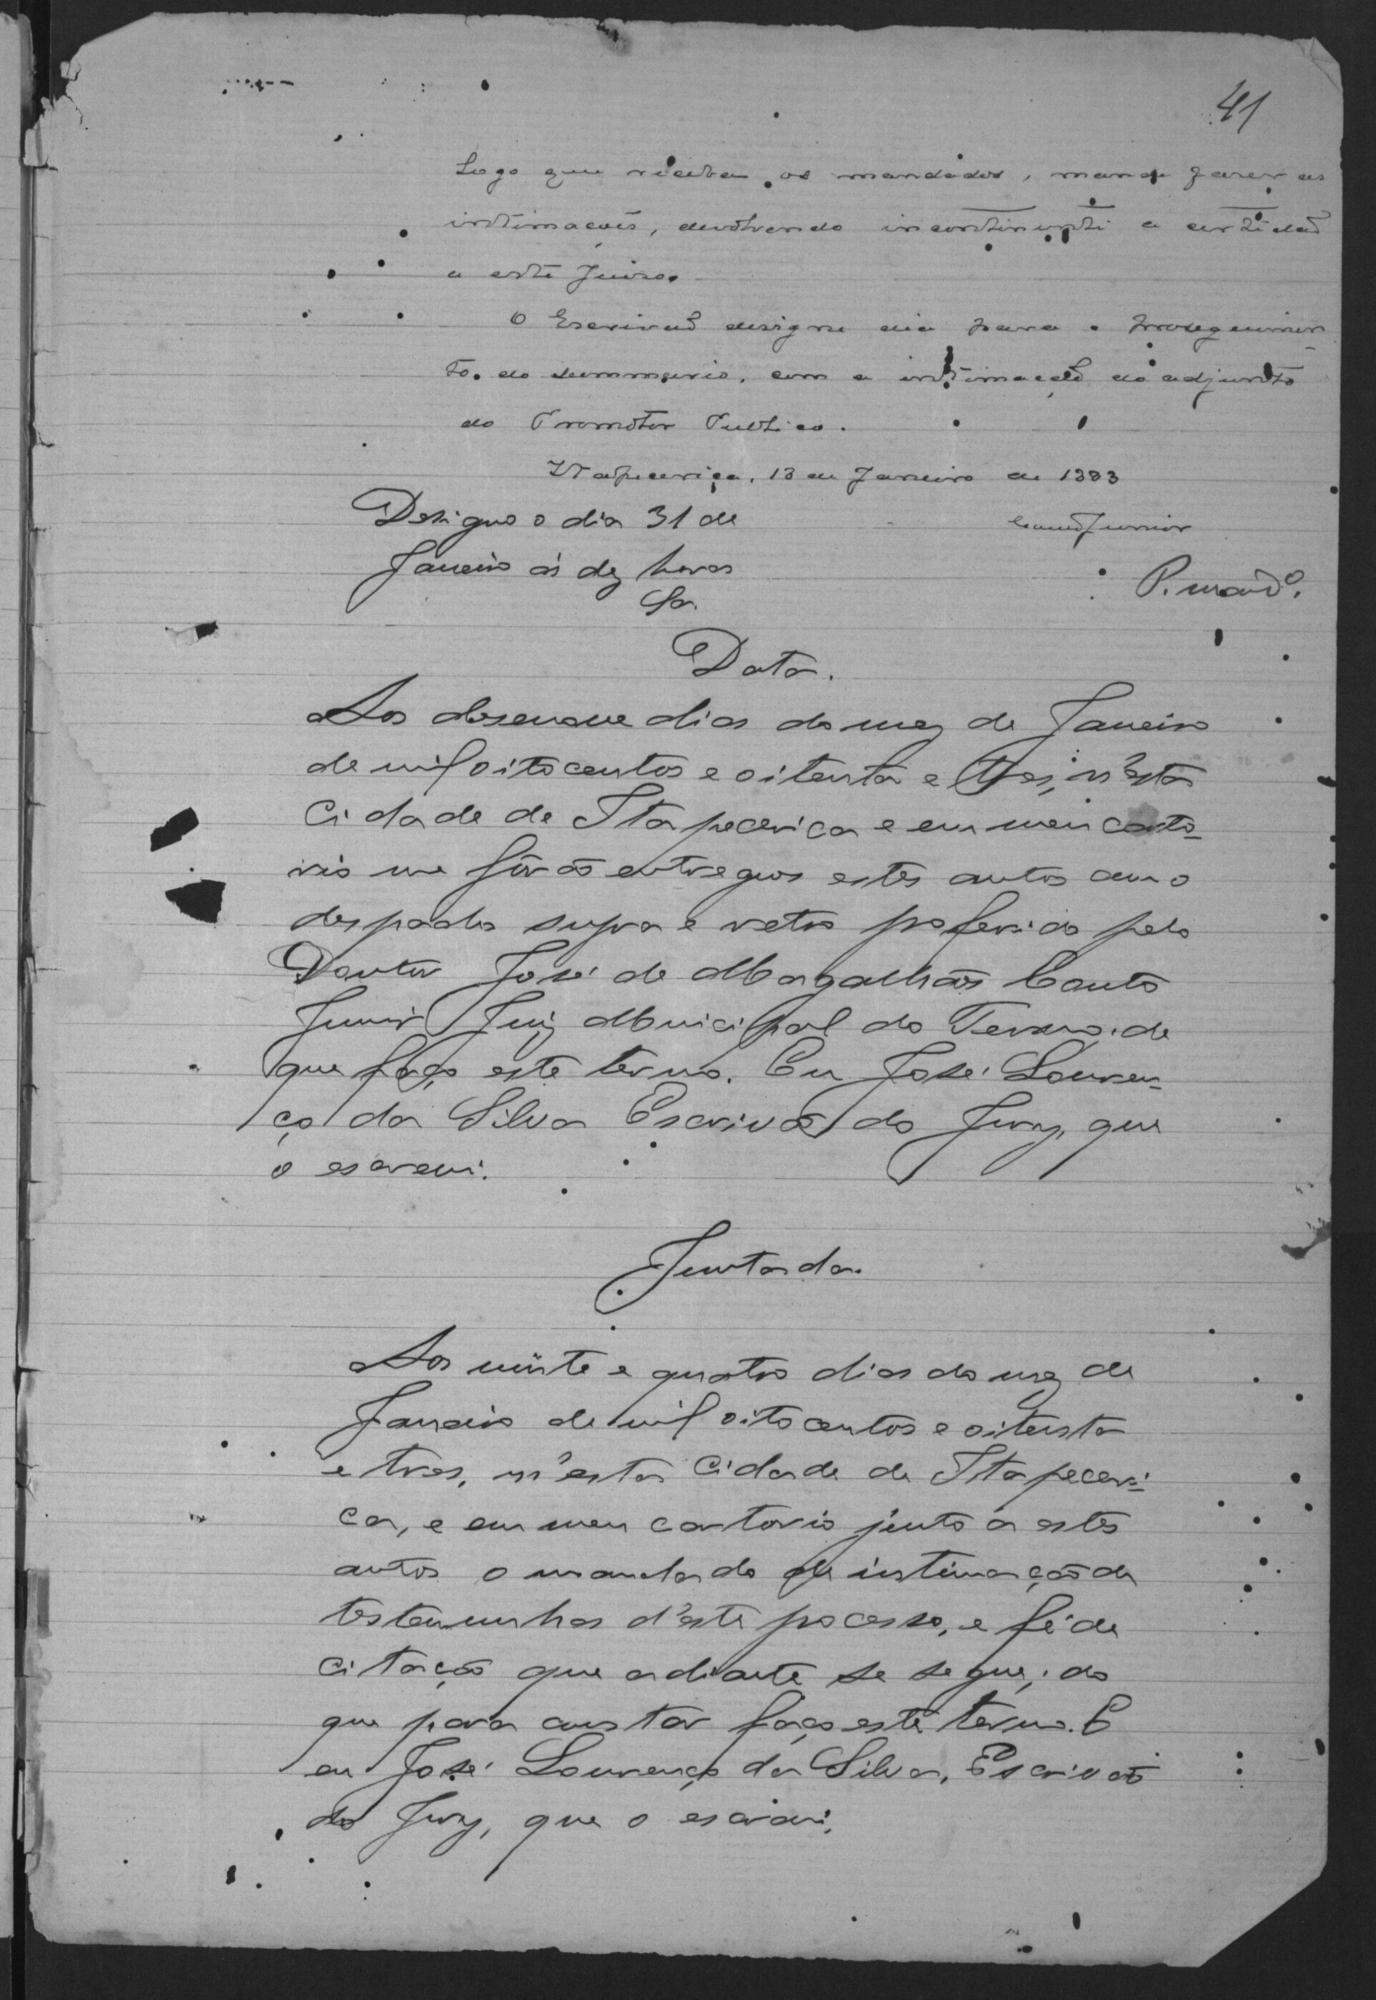 41
Logo que receba os mandados, mande fazer as
intimações, devolvendo incontinenti a certidaõ
a este Juizo.
O Escrivaõ designe dia para o proseguimen
to do summario, com a intimaçaõ do adjunto
do Promotor Publico.
Itapecerica, 18 de Janeiro de 1883
Couto Junior
Designo o dia 31 de
Janeiro ás dez horas
P. mand.º
Data.
Aos desenove dias do mez de Janeiro
de mil oito centos e oitenta e tres, n'esta
Cidade de Itapecerica e em meu carto-
rio me fôraõ entregues estes autos com o
despacho supra e retro proferido pelo
Doutor José de Magalhães Couto
Junior Juiz Municipal do Termo. de
que faço este termo. Eu José Louren-
ço da Silva Escrivaõ do Jury, que
o escrevi.
Juntada.
Aos vinte e quatro dias do mez de
Janeiro de mil oito centos e oitenta
e tres, n'esta Cidade de Itapeceri-
ca, e em meu cartorio junto a estes
autos o mandado de intimação de
testemunhas d'este processo, e fé de
citação que adiante se segue; do
que para constar faço este termo. E
eu José Lourenço da Silva, Escrivaõ
do Jury, que o escrevi.